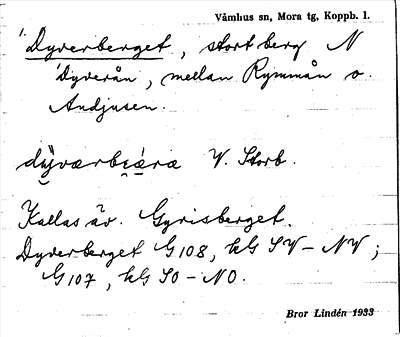 Våmhus sn, Mora tg, Koppb. l.
1. Dyverberget, stort berg N
Dyverån, mellan Rymmån o.
Andjusen.
V. Storb.
Kallas äv. Gyrisberget.
Dyverberget G108, kG SV–NV;
G107, kG SO–NO.
Bror Lindén 1933